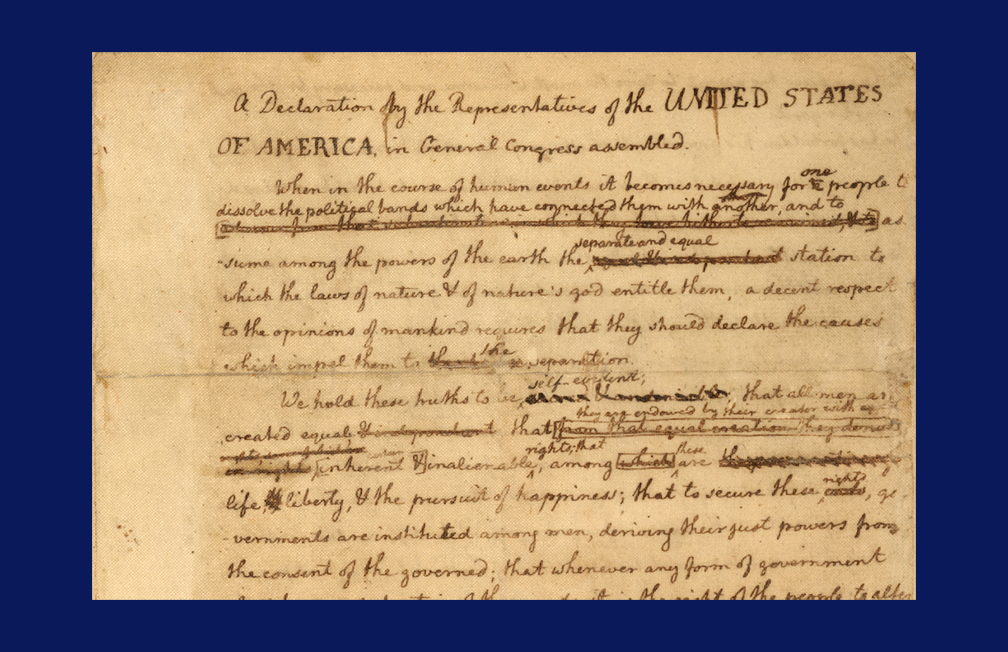 A Declaration by the Representatives of the UNITED STATES
OF AMERICA, in General Congress assembled.
When in the course of human events it becomes necessary for one people t
dissolve the political bands which have connected them with another, and to
as
separate and equal
-sume among the powers of the earth the station to
which the laws of nature & of nature's god entitle them, a decent respect
to the opinions of mankind requires that they should declare the causes
the
which impel them to separation.
self-evident;
We hold these truths to be that all men ar
they are endowed by their creator with
created equal & independent that from that equal creation they derive
rights; that these
in rights inherent & inalienable, among which are
rights
life, liberty, & the pursuit of happiness; that to secure these ends, go
-vernments are instituted among men, deriving their just powers from
the consent of the governed; that whenever any form of government
it is the right of the people to alter